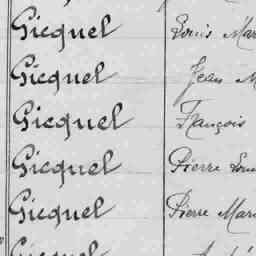 Gicquel Louis Mar
Gicquel Jean M
Gicquel François
Gicquel Pierre Lou
Gicquel Pierre Mari
Gicquel